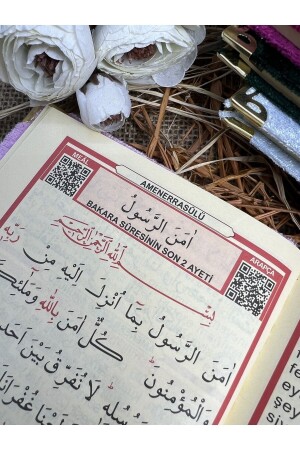 MEAL
AMENERRASULÜ
ARAPÇA
اٰمَنَ الرَّسُولُ
BAKARA SÛRESİNİN SON 2 AYETİ
بِسْمِ اللّٰهِ الرَّحْمٰنِ الرَّحِيمِ
اٰمَنَ الرَّسُولُ بِمَٓا اُنْزِلَ اِلَيْهِ مِنْ رَبِّهِ
وَالْمُؤْمِنُونَ كُلٌّ اٰمَنَ بِاللّٰهِ
لَا نُفَرِّقُ بَيْنَ اَحَدٍ
غُفْرَانَكَ
fe
şey
si